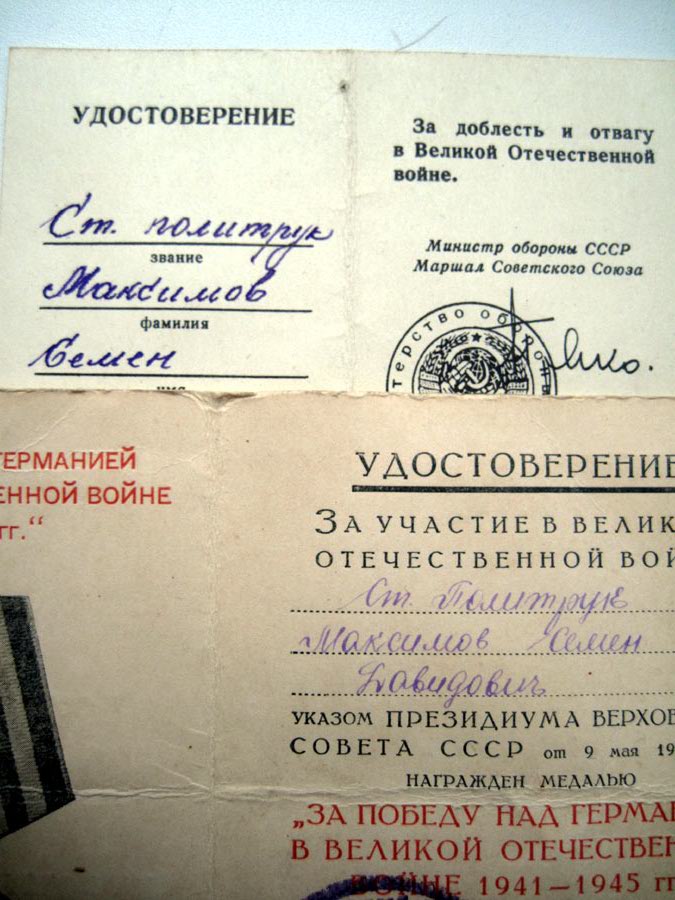 УДОСТОВЕРЕНИЕ
Ст. политрук
звание
Максимов
фамилия
Семен
имя
За доблесть и отвагу
в Великой Отечественной
войне.
Министр обороны СССР
Маршал Советского Союза
терство оборо
ГЕРМАНИЕЙ
ЕННОЙ ВОЙНЕ
гг.“
УДОСТОВЕРЕНИЕ
ЗА УЧАСТИЕ В ВЕЛИК
ОТЕЧЕСТВЕННОЙ ВОЙ
Ст. Политрук
Максимов Семен
Давидович
УКАЗОМ ПРЕЗИДИУМА ВЕРХОВ
СОВЕТА СССР от 9 мая 19
НАГРАЖДЕН МЕДАЛЬЮ
„ЗА ПОБЕДУ НАД ГЕРМА
В ВЕЛИКОЙ ОТЕЧЕСТВЕН
ВОЙНЕ 1941–1945 гг